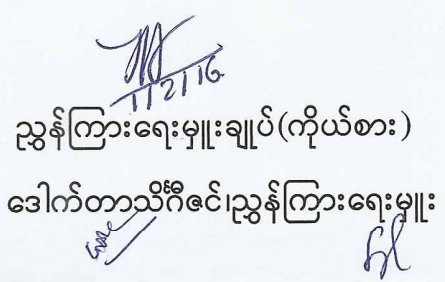 1/2/16
ညွှန်ကြားရေးမှူးချုပ်(ကိုယ်စား)
ဒေါက်တာသိင်္ဂီဇင်၊ညွှန်ကြားရေးမှူး